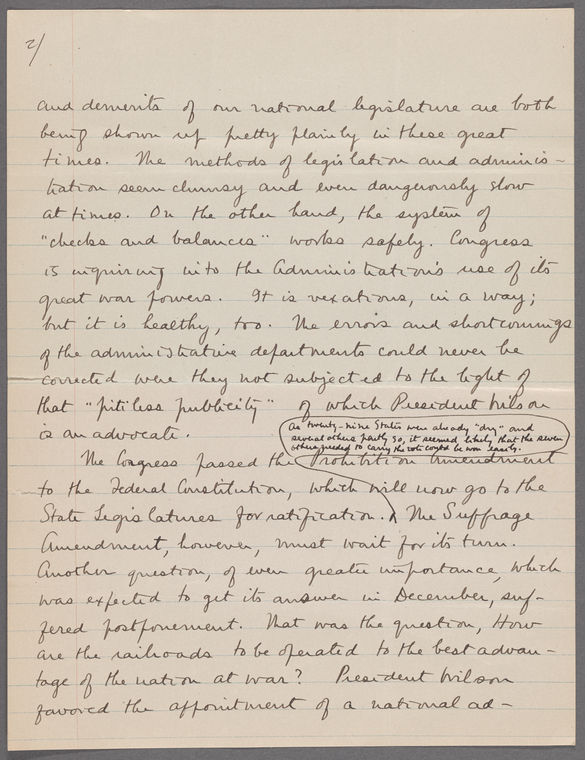 2/
and demerits of our national legislature are both
being shown up pretty plainly in these great
times. The methods of legislation and adminis-
tration seem clumsy and even dangerously slow
at times. On the other hand, the system of
"checks and balances" works safely. Congress
is inquiring into the Administration's use of its
great war powers. It is vexatious, in a way;
but it is healthy, too. The errors and shortcomings
of the administrative departments could never be
corrected were they not subjected to the light of
that "pitiless publicity" of which President Wilson
is an advocate.
As twenty-nine States were already "dry" and
several others partly so, it seemed likely that the seven
others needed to carry the vote could be won easily.
The Congress passed the Prohibition Amendment
to the Federal Constitution, which will now go to the
State Legislatures for ratification. ^ The Suffrage
Amendment, however, must wait for its turn.
Another question, of even greater importance, which
was expected to get its answer in December, suf-
fered postponement. That was the question, How
are the railroads to be operated to the best advan-
tage of the nation at war? President Wilson
favored the appointment of a national ad-